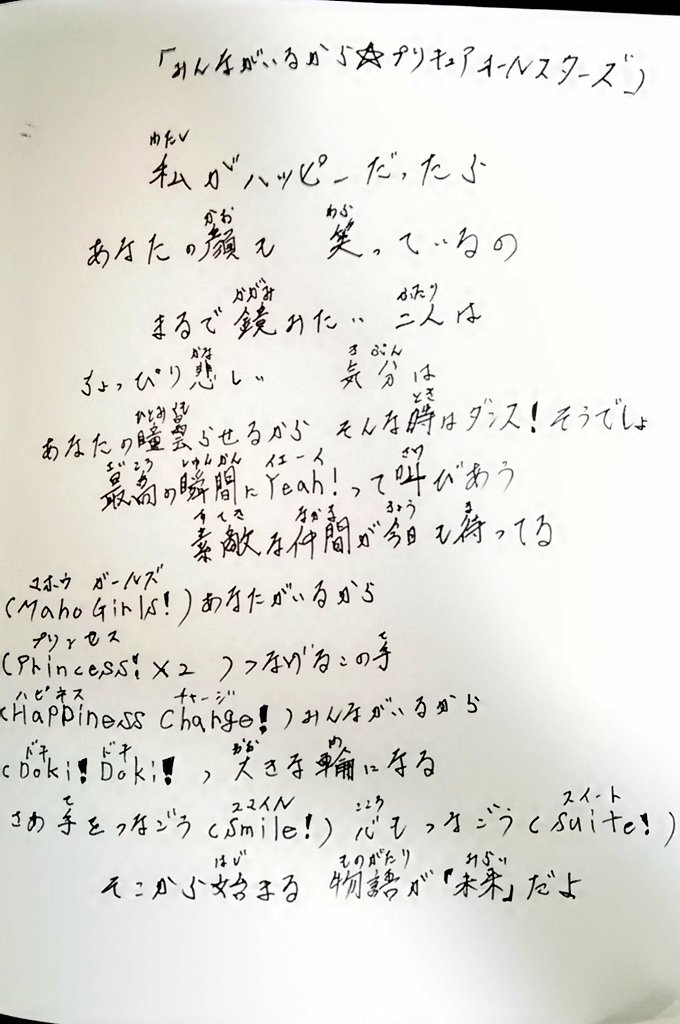 「みんながいるから☆プリキュアオールスターズ」
わたし
私がハッピーだったら
かお わら
あなたの顔も 笑っているの
かがみ ふたり
まるで鏡みたい 二人は
かな きぶん
ちょっぴり悲しい 気分は
ひとみ くも とき
あなたの瞳曇らせるから そんな時はダンス!そうでしょ
さいこう しゅんかん イエーイ さけ
最高の瞬間にYeah!って叫びあう
すてき なかま きょう ま
素敵な仲間が今日も待ってる
マホウ ガールズ
(Maho Girls!)あなたがいるから
プリンセス て
(Princess!×2 )つなげるこの手
ハピネス チャージ
(Happiness Charge!)みんながいるから
ドキ ドキ おお わ
(Doki!Doki! )大きな輪になる
て スマイル こころ スイート
さあ手をつなごう(Smile!)心もつなごう(Suite!)
はじ ものがたり みらい
そこから始まる 物語が「未来」だよ